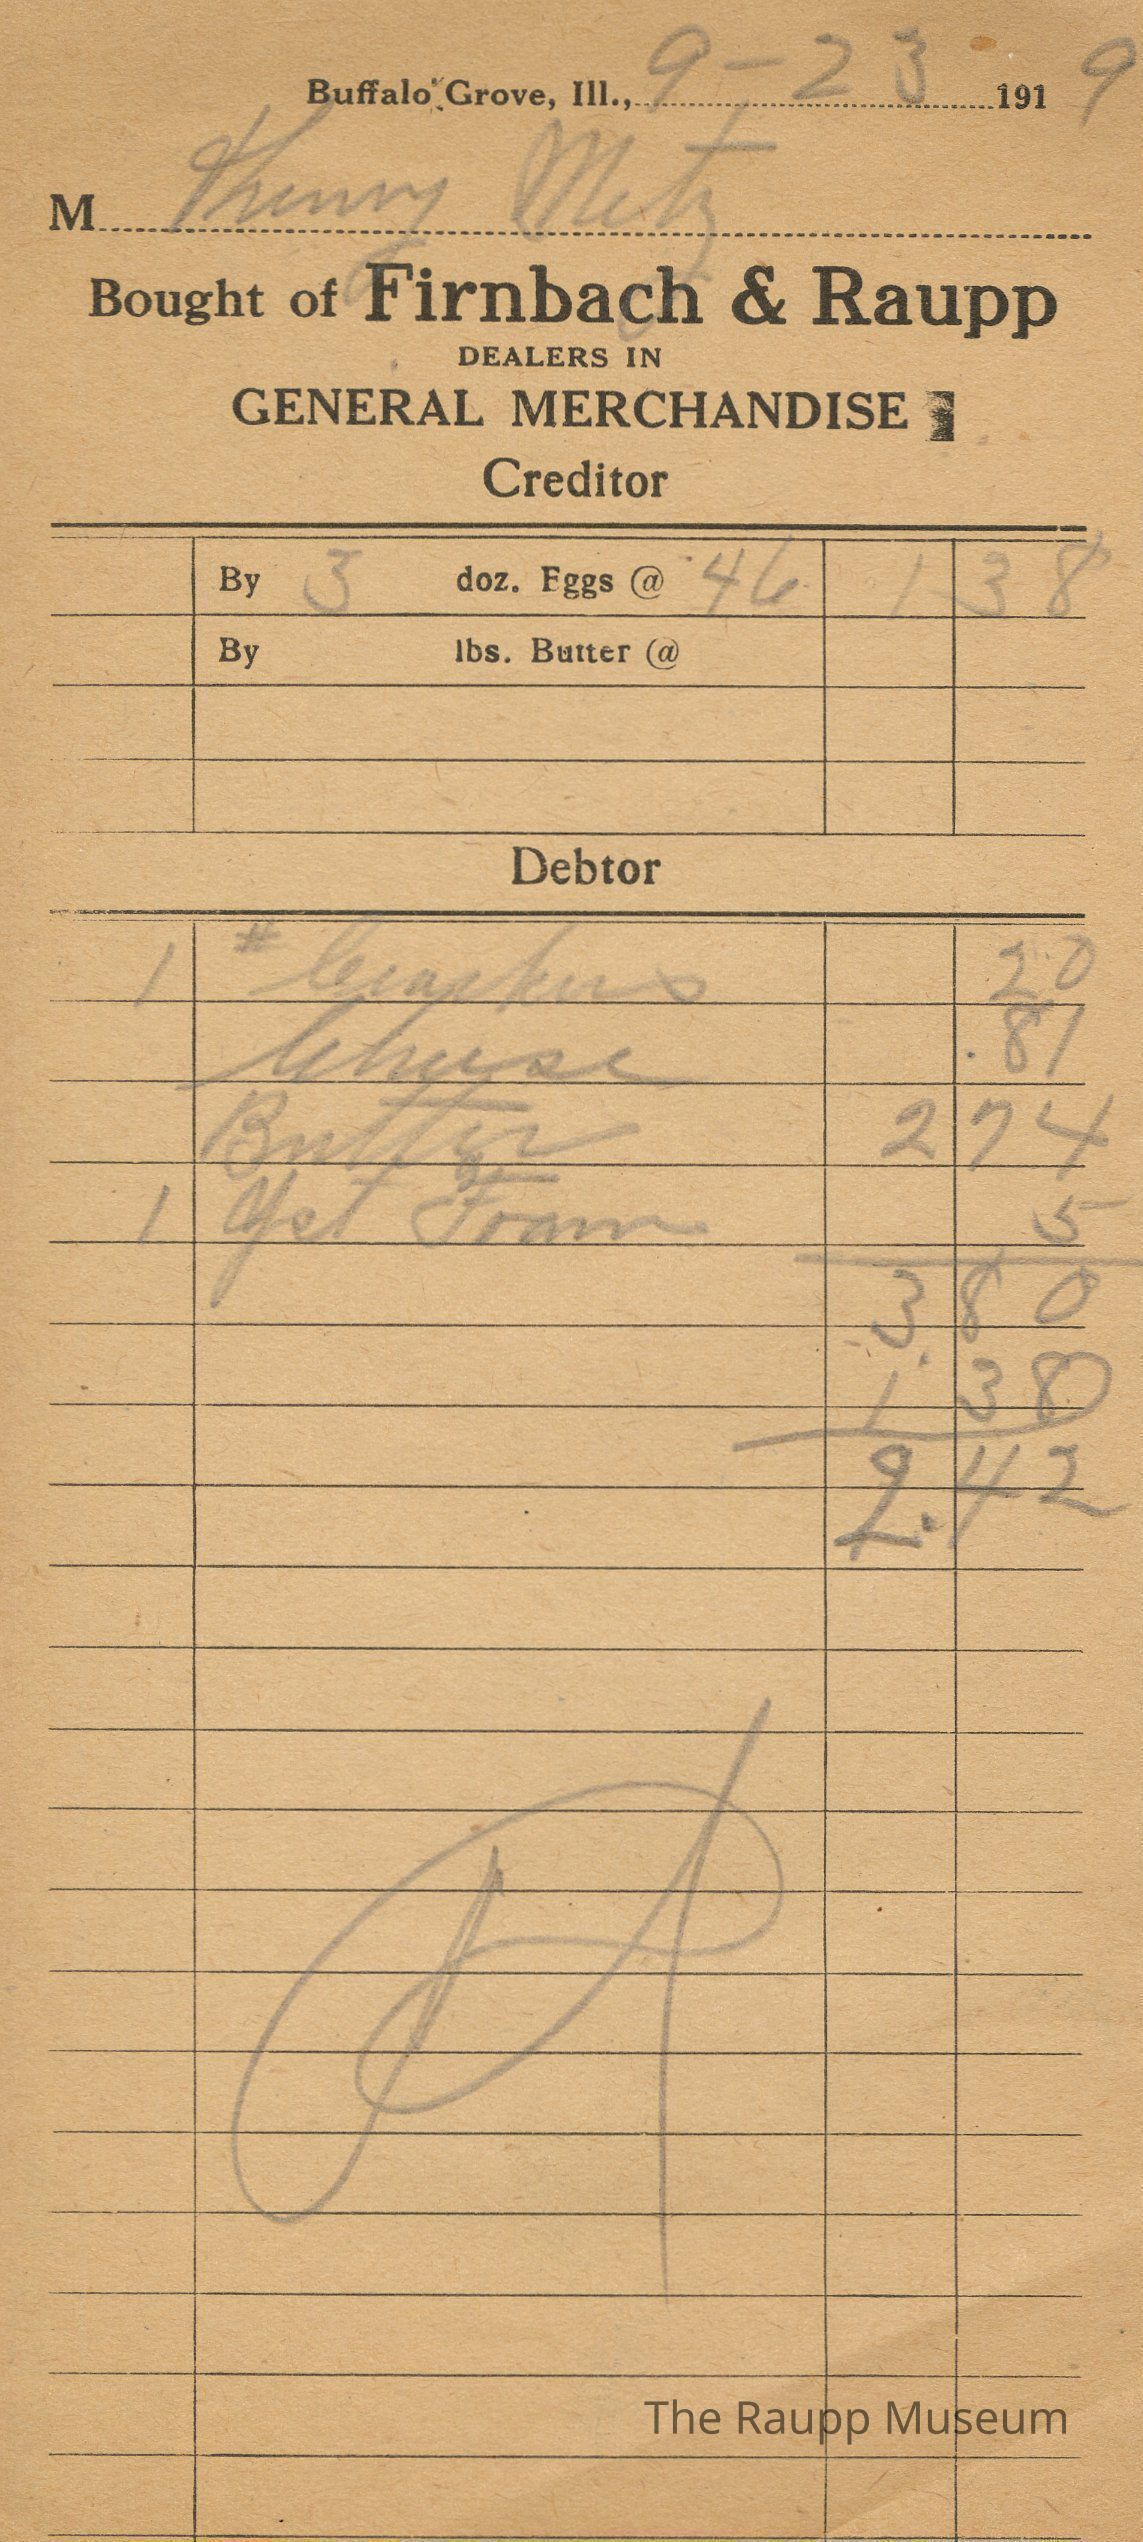 Buffalo Grove, Ill., 9-23 1919
M Henry Metz
Bought of Firnbach & Raupp
DEALERS IN
GENERAL MERCHANDISE
Creditor
By 3 doz. Eggs @ 46 1 38
By lbs. Butter @
Debtor
1 # Crackers 20
Cheese .81
Butter 2 74
1 Yst Foam 5
3.80
1 38
2.42
The Raupp Museum